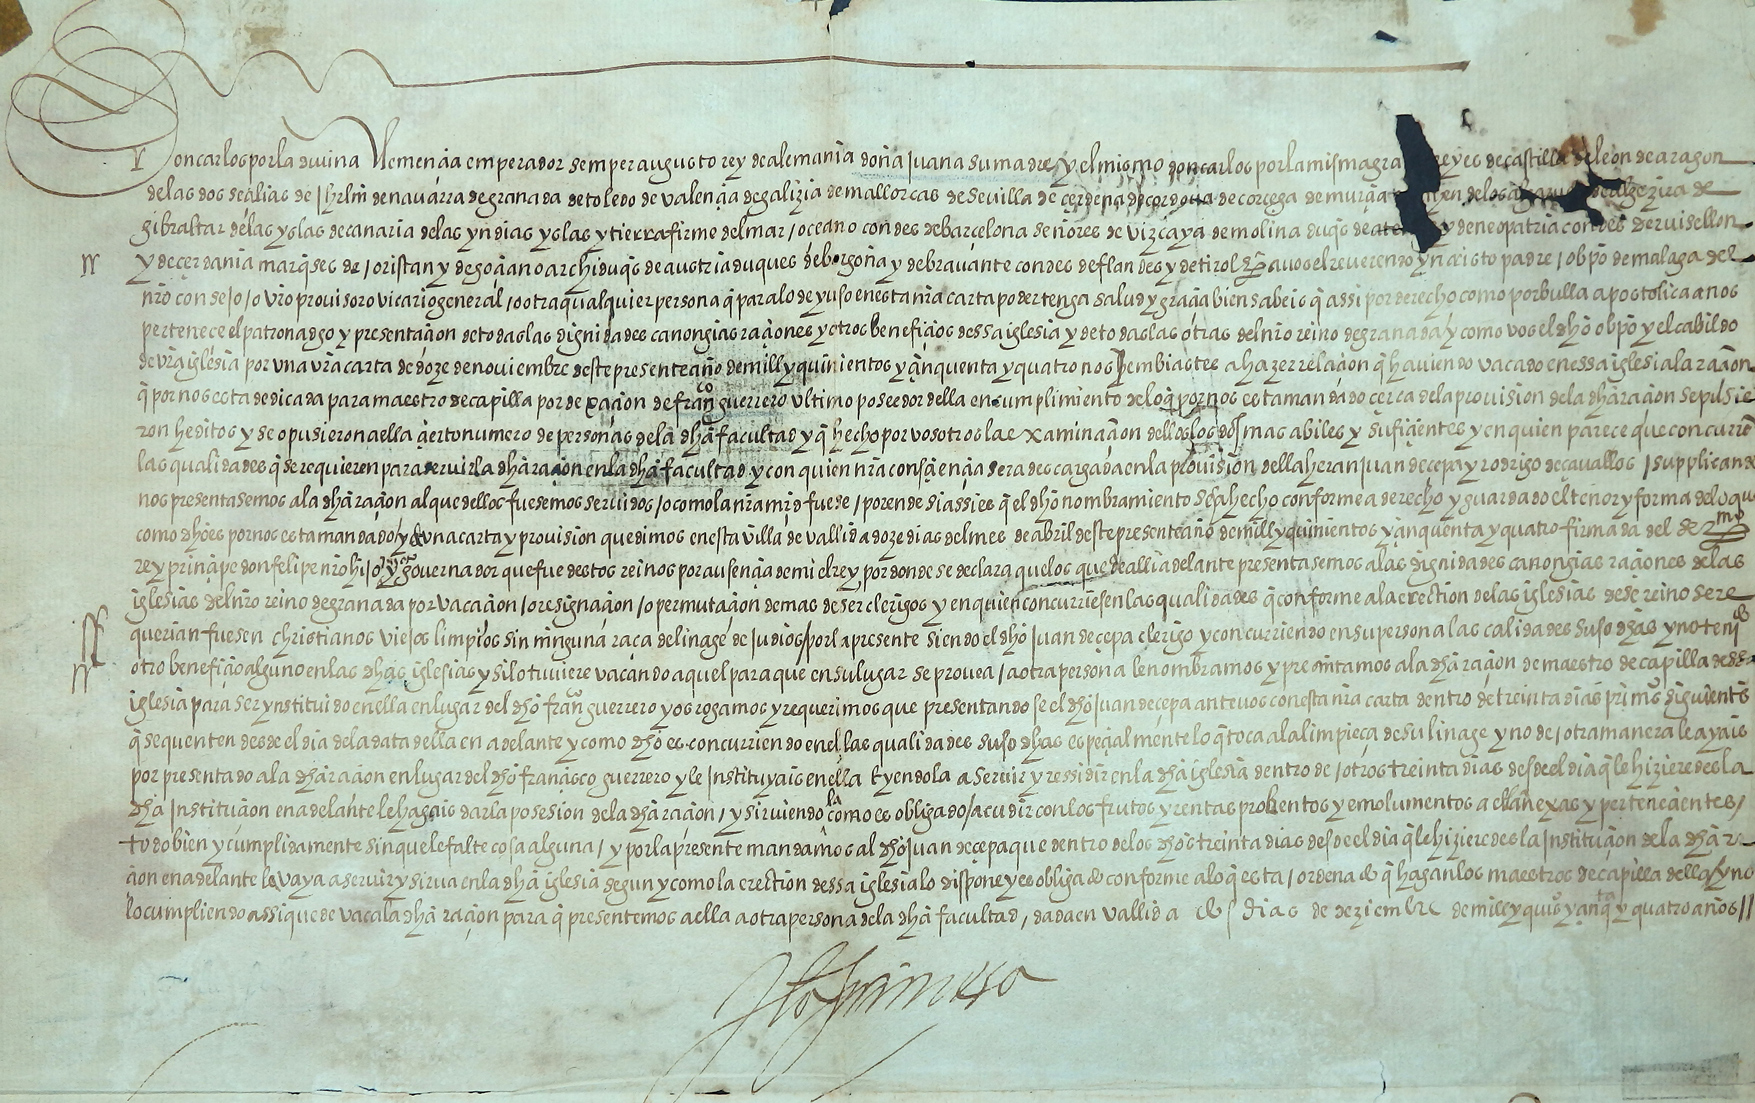 Don carlos por la divina clemençia emperador semper augusto rey de alemania doña juana su madre y el mismo don carlos por la misma gra reyes de castilla de leon de aragon
de las dos seçilias de jhrlm de navarra de granada de toledo de valençia de galizia de mallorcas de sevilla de çerdena de cordova de corçega de murçia de jaen de los algarves de algezira de
gibraltar de las yslas de canaria de las yndias yslas y tierra firme del mar / oceano condes de barcelona señores de vizcaya de molina duq̃s de y de neopatria condes de ruisellon
y de cerdania marq̃ses de / oristan y de goçiano archiduq̃s de austria duques de borgoña y de bravante condes de flandes y de tirol &c a vos el reverendo yn cristo padre / obpõ de malaga del
nr̃o consejo / o vr̃o provisor o vicario general / o otra qualquier persona q̃ para lo de yuso en esta nr̃a carta poder tenga salud y graçia bien sabeis q̃ assi por derecho como por bulla apostolica a nos
pertenece el patronadgo y presentaçion de todas las dignidades canongias raçiones y otros benefiçios dessa iglesia y de todas las otras del nr̃o reino de granada y como vos el dhõ obpõ y el cabildo
de vr̃a iglesia por una vr̃a carta de doze de noviembre deste presente año de mill y quinientos y çinquenta y quatro nos embiastes a hazer relaçion q̃ haviendo vacado en essa iglesia la raçion
q̃ por nos esta dedicada para maestro de capilla por dexaçion de franco guerrero ultimo poseedor della en cumplimiento de lo q̃ por nos esta mandado çerca de la provision de la dhã raçion se pusie
ron heditos y se opusieron a ella çierto numero de personas de la dhã facultad y q̃ hecho por vosotros la examinaçion dellos los dos mas abiles y sufiçientes y en quien parece que concurren
las qualidades q̃ se requieren para servir la dhã raçion en la dhã facultad y con quien nr̃a consçiençia sera descargada en la provision della heran juan de çepa y rodrigo de cavallos / supplicando
nos presentasemos a la dhã raçion al que dellos fuesemos servidos / o como la nr̃a mrd fuese / por ende si assi es q̃ el dhõ nombramiento se ha hecho conforme a derecho y guardado el tenor y forma de lo que
como dhõ es por nos esta mandado y una carta y provision que dimos en esta villa de vallid a doze dias del mes de abril deste presente año de mill y quinientos y çinquenta y quatro firmada del
rey prinçipe don felipe nr̃o hijo y governador que fue destos reinos por ausençia de mi el rey por donde se declara que los que de alli adelante presentasemos a las dignidades canongias raçiones de las
iglesias del nr̃o reino de granada por vacaçion / o resignaçion / o permutaçion demas de ser clerigos y en quien concurriesen las qualidades q̃ conforme a la erection de las iglesias dese reino se re
querian fuesen christianos viejos limpios sin ninguna raça de linage de judios / por la presente siendo el dhõ juan de çepa clerigo y concurriendo en su persona las calidades suso dhãs y no teniendo
otro benefiçio alguno en las dhãs iglesias y si lo tuviere vacando aquel para que en su lugar se provea / a otra persona le nombramos y presentamos a la dhã raçion de maestro de capilla dessa
iglesia para ser ynstituido en ella en lugar del dhõ franco guerrero y os rogamos y requerimos que presentandose el dhõ juan de çepa ante vos con esta nr̃a carta dentro de treinta dias primõs siguientes
q̃ se quenten desde el dia de la data della en adelante y como dhõ es concurriendo en el las qualidades suso dhas espeçialmente lo q̃ toca a la limpieça de su linage y no de / otra manera le ayais
por presentado a la dhã raçion en lugar del dhõ françisco guerrero y le instituyais en ella e yendola a servir y ressidir en la dhã iglesia dentro de / otros treinta dias desde el dia q̃ le hizieredes la
dhã instituçion en adelante le hagais dar la posesion de la dhã raçion / y sirviendola como es obligado / acudir con los frutos y rentas probentos y emolumentos a ella anexas y perteneçientes /
todo bien y cumplidamente sin que le falte cosa alguna / y por la presente mandamos al dhõ juan de çepa que dentro de los dhõs treinta dias desde el dia q̃ le hizieredes la instituçion de la dhã ra
çion en adelante la vaya a servir y sirva en la dhã iglesia segun y como la erection dessa iglesia lo dispone y es obligado conforme a lo q̃ esta / ordenado q̃ hagan los maestros de capilla della / y no
lo cumpliendo assi quede vaca la dhã raçion para q̃ presentemos a ella a otra persona de la dhã facultad / dada en vallid a dias de deziembre de mill y quis y çinqta y quatro años //